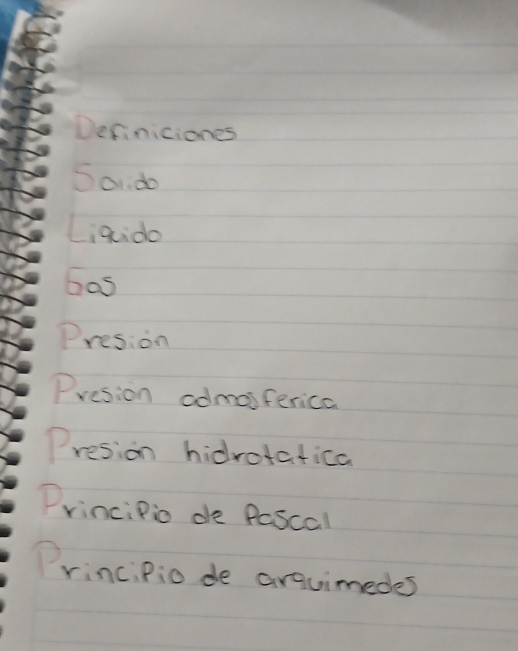 Definiciones
Solido
Liquido
Gas
Presión
Presión admosferica
Presión hidrotatica
Principio de Pascal
Principio de arquimedes